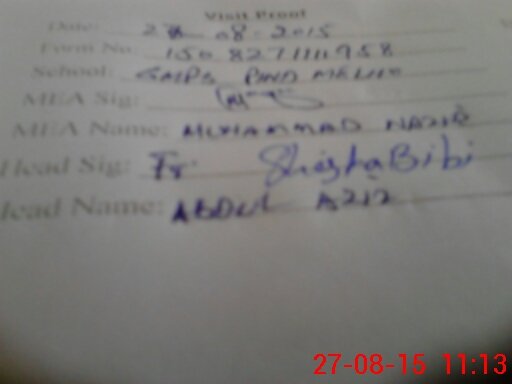 Visit Proof
Date: 27-08-2015
Form No. 150827111958
School: GMPS PIND
MEA Sig:
MEA Name: MUHAMMAD NAZIR
Head Sig: Fr. Shista Bibi
Head Name: ABDUL AZIZ
27-08-15 11:13